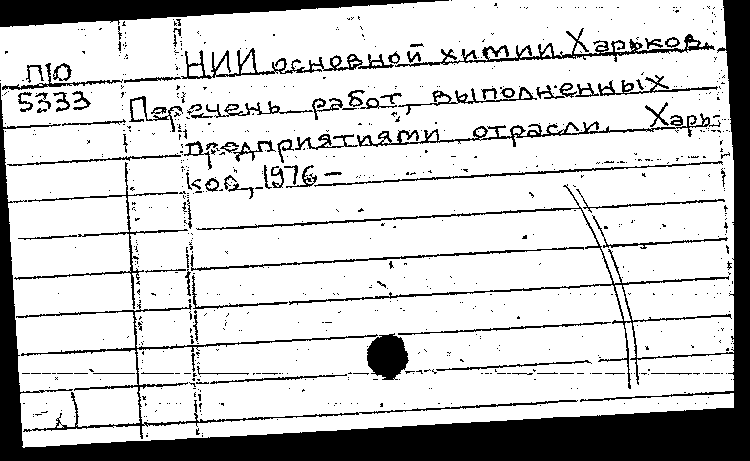 П10
5333
НИИ основной химии. Харьков.
Перечень работ, выполненных
предприятиями отрасли. Харь-
ков, 1976 –